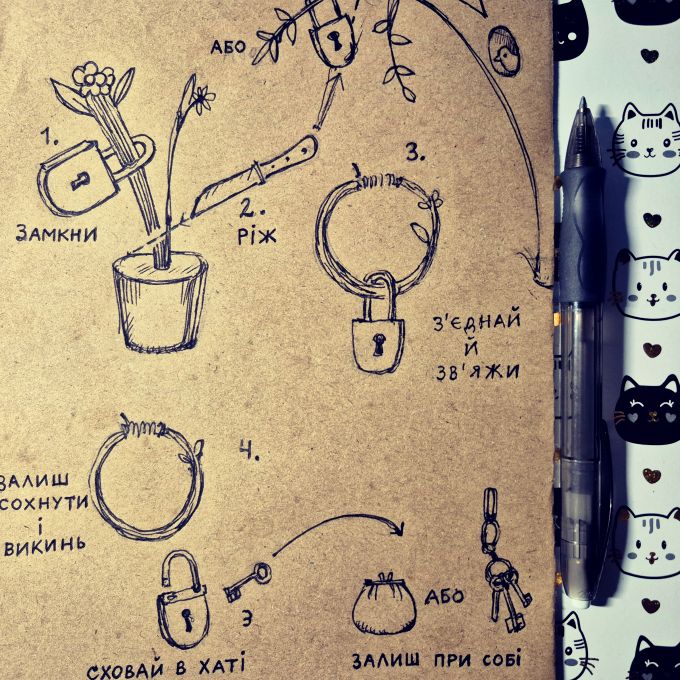 АБО
1.
ЗАМКНИ
2.
РІЖ
3.
З'ЄДНАЙ
Й
ЗВ'ЯЖИ
4.
ЗАЛИШ
СОХНУТИ
І
ВИКИНЬ
З
СХОВАЙ В ХАТІ
АБО
ЗАЛИШ ПРИ СОБІ